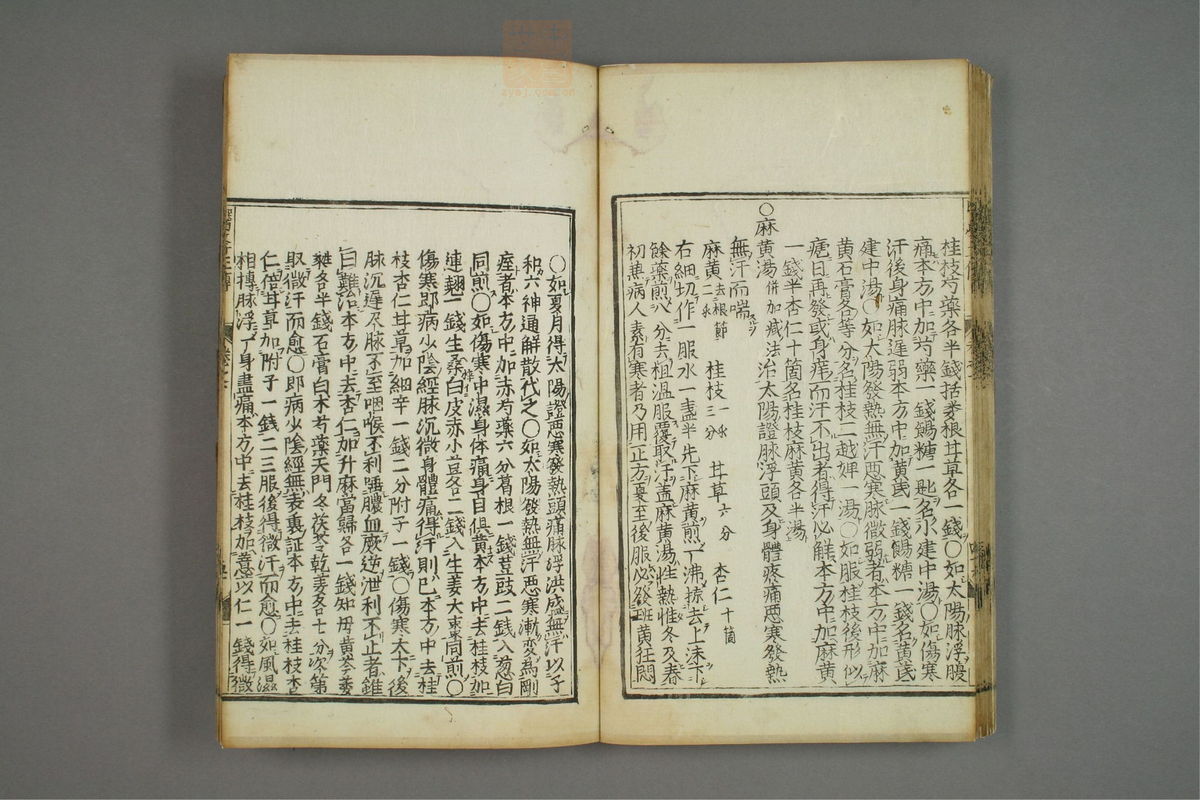 桂枝芍藥各半錢括蔞根甘草各一錢○如太陽脉浮腹
痛本方中加芍藥一錢餳糖一匙名小建中湯○如傷寒
汗後身痛脉遲弱本方中加黄芪一錢餳糖一錢名黄芪
建中湯○如太陽發熱無汗惡寒脉微弱者本方中加麻
黄石膏各等分名桂枝二越婢一湯○如服桂枝後形似
瘧日再發或身痒而汗不出者得汗必觧本方中加麻黄
一錢半杏仁十箇名桂枝麻黄各半湯
○麻黄湯併加减法治太陽證脉浮頭及身體疼痛惡寒發熱
無汗而喘
麻黄去根節二 桂枝三分 甘草六分 杏仁十箇
右細切作一服水一盞半先下麻黄煎一沸掠去上沫下
餘藥煎八分去柤温服覆取汗盖麻黄湯性熱惟冬及春
初熱病人素有寒者乃用正方夏至後服必發斑黄狂悶
○如夏月得太陽證惡寒發熱頭痛脉浮洪盛無汗以子
和六神通解散代之○如太陽發熱無汗惡寒漸變為剛
痓者本方中加赤芍藥六分葛根一錢荳豉二錢入葱白
同煎○如傷寒中濕身体痛身目俱黄本方中去桂枝加
連翹一錢生桑白皮赤小荳各二錢入生姜大棗同煎○
傷寒即病少陰經脉沉微身體痛得汗則已本方中去桂
枝杏仁甘草加細辛一錢二分附子一錢○傷寒大下後
脉沉遲尺脉不至咽喉不利唾膿血厥逆泄利不止者雖
曰難治本方中去杏仁加升麻當歸各一錢知母黄芩萎
蕤各半錢石膏白术芍藥天門冬茯苓乾姜各七分次第
取微汗而愈○即病少陰經無表裏証本方中去桂枝杏
仁倍甘草加附子一錢二三服後得微汗而愈○如風濕
相摶脉浮一身盡痛本方中去桂枝加薏苡仁一錢得微